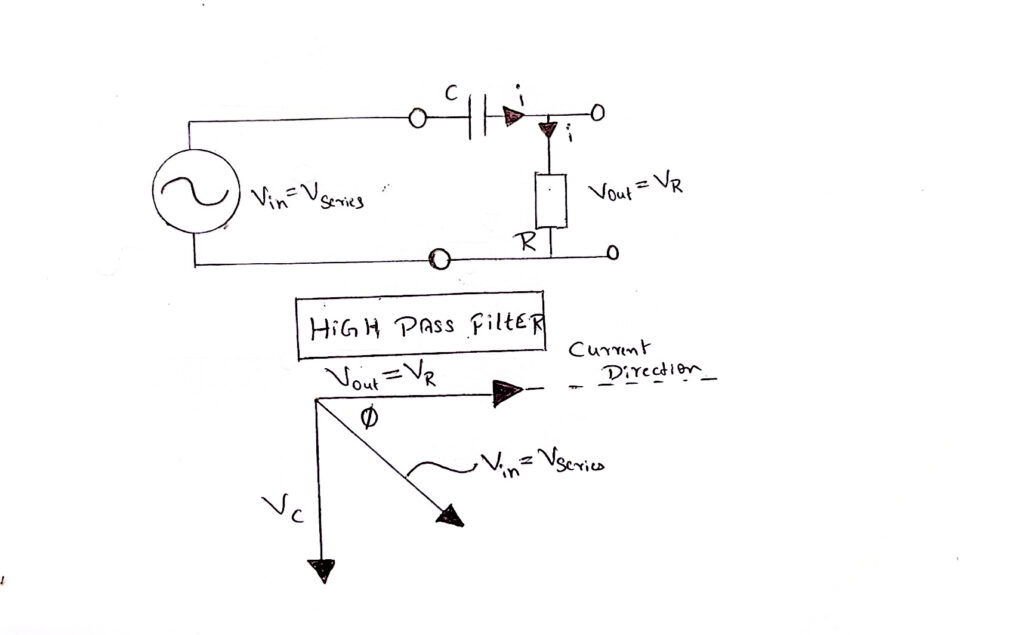 C
i
i
Vin = Vseries
Vout = VR
R
HiGH PASS FilteR
Vout = VR
Current
Direction
Ø
Vin = Vseries
VC